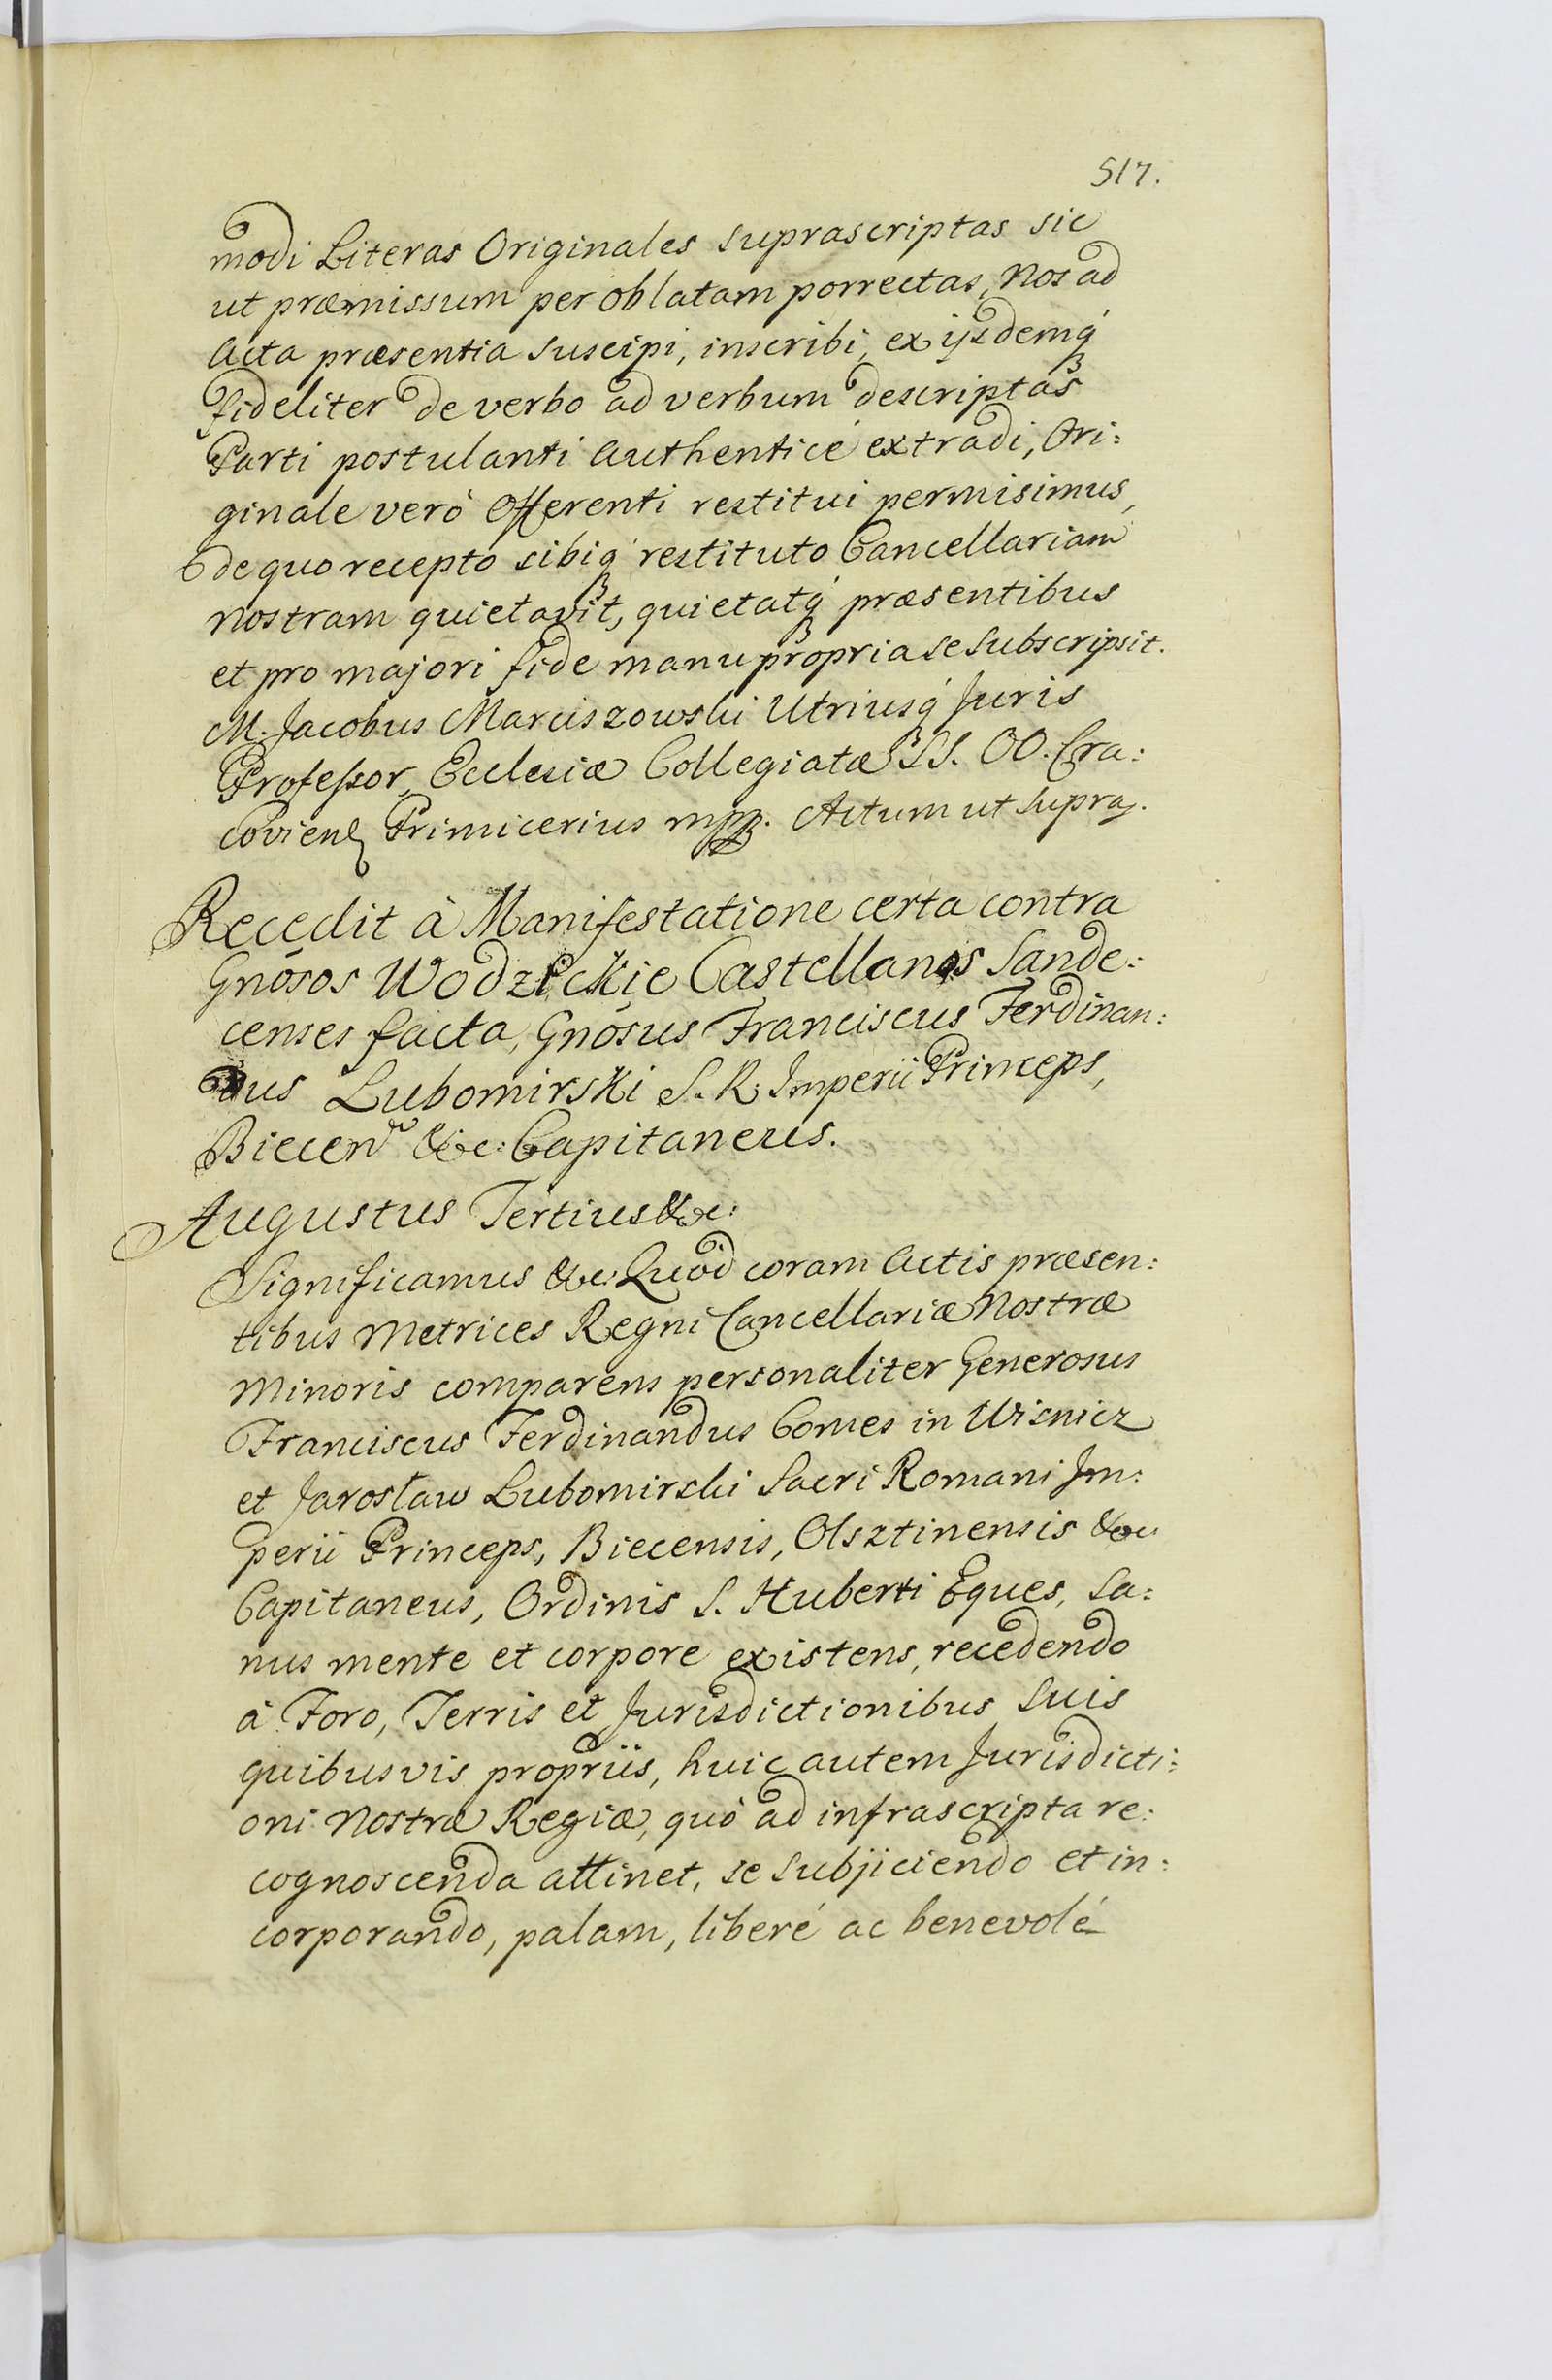 517.
modi Literas Originales suprascriptas sic
ut præmissum per oblatam porrectas, Nos ad
Acta præsentia suscipi, inscribi, ex ijsdemq́
fideliter de verbo ad verbum descriptas
Parti postulanti authenticé extradi, Ori:
ginale verò Offerenti restitui permisimus,
de quo recepto sibiq́ restituto Cancellariam
nostram quietavit, quietatq́ præsentibus
et pro majori fide manu propria se subscripsit.
M. Jacobus Marciszowski Utriusq́ Juris
Professor, Ecclesiæ Collegiatæ SS. OO. Cra:
covien Primicerius mpp. Actum ut supra.
Recedit à Manifestatione certa contra
Gnōsos Wodzickie Castellanos Sande:
censes facta, Gnōsus Franciscus Ferdinan:
dus Lubomirski S. R. Imperii Princeps,
Biecen &c: Capitaneus.
Augustus Tertius &c:
Significamus &c: Quod coram Actis præsen:
tibus Metrices Regni Cancellariæ Nostræ
Minoris comparens personaliter Generosus
Franciscus Ferdinandus Comes in Wisnicz
et Jarosław Lubomirski Sacri Romani Jm:
perii Princeps, Biecensis, Olsztinensis &c
Capitaneus, Ordinis S. Huberti Eques, sa:
nus mente et corpore existens, recedendo
à Foro, Terris et Jurisdictionibus suis
quibusvis propriis, huic autem Jurisdicti:
oni Nostræ Regiæ, quò ad infrascripta re:
cognoscenda attinet, se subjiciendo et in:
corporando, palam, liberé ac benevolé